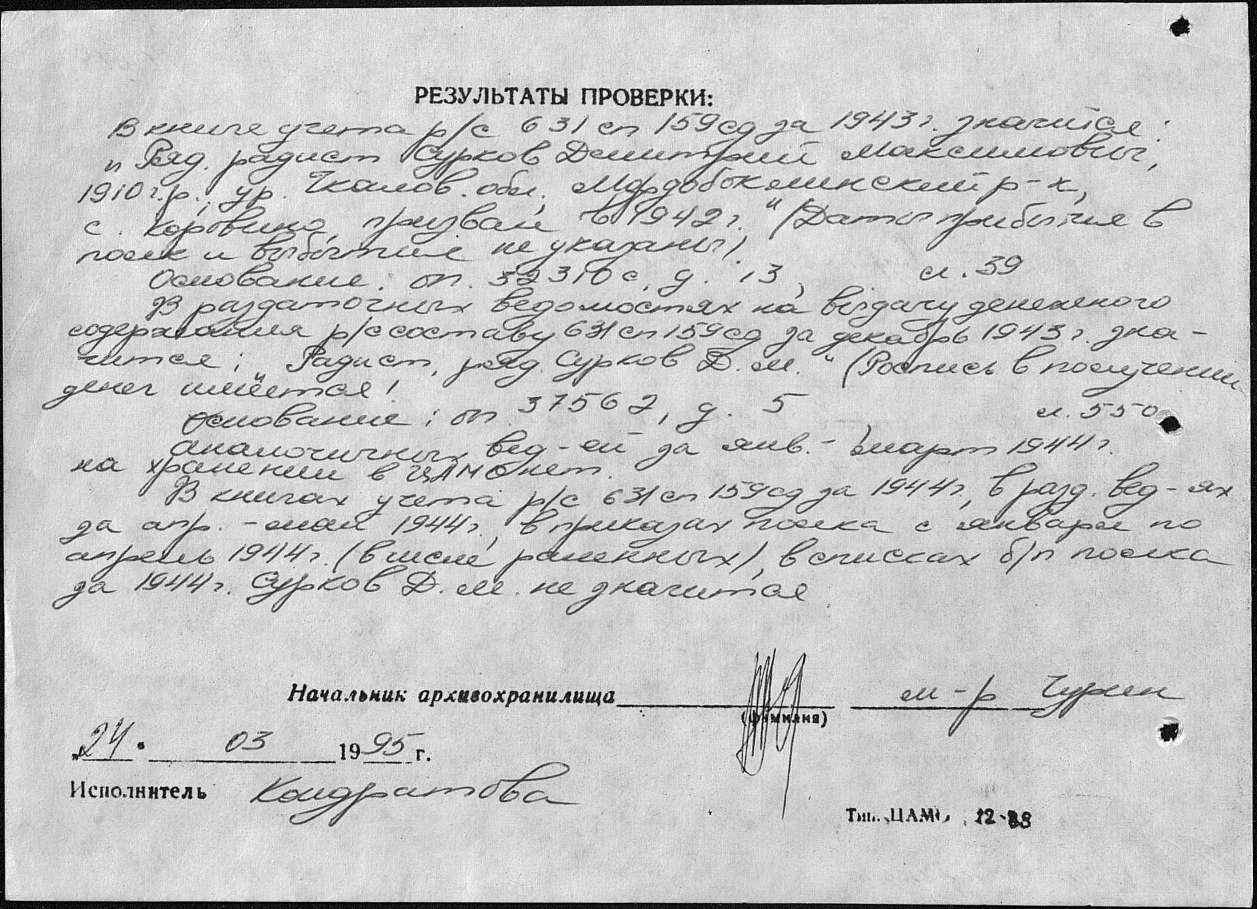 РЕЗУЛЬТАТЫ ПРОВЕРКИ:
В книге учета р/с 631 сп 159 сд за 1943 г. значится:
" Ряд. радист Сурков Дмитрий Максимович,
1910 г.р., ур. Чкалов. обл., Мордобоклинский р-н,
с. Коровино, призван в 1942 г." (Даты прибытия в
полк и выбытия не указаны).
Основание: оп. 32310с, д. 13, л. 39
В раздаточных ведомостях на выдачу денежного
содержания р/с составу 631 сп 159 сд за декабрь 1943 г. зна-
чится: " Радист, ряд. Сурков Д.М." (Роспись в получении
денег имеется).
Основание: оп. 37562, д. 5 л. 550
Аналогичных вед-ей за янв. - март 1944 г.
на хранении в ЦАМО нет.
В книгах учета р/с 631 сп 159 сд за 1944 г., в разд. вед-ях
за апр. - май 1944 г., в приказах полка с января по
апрель 1944 г. (в числе раненных), в списках б/п полка
за 1944 г. Сурков Д.М. не значится.
Начальник архивохранилища м-р Чурин
(фамилия)
„24" 03 1995 г.
Исполнитель Кондратова
Тип. ЦАМО